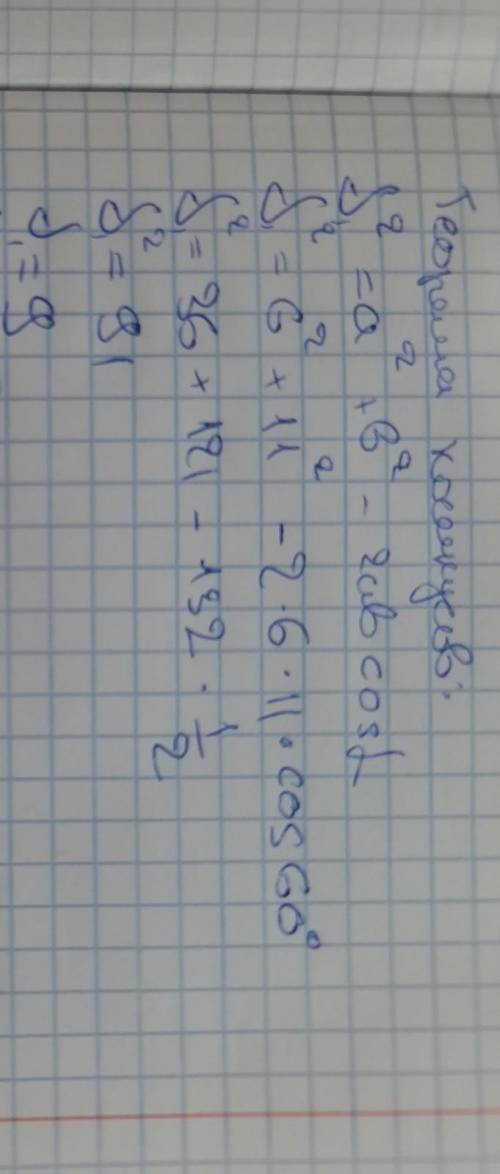 Теорема косинусов:
d₁² = a² + b² - 2ab cos α
d₁² = 6² + 11² - 2 · 6 · 11 · cos 60°
d₁² = 36 + 121 - 132 · 1/2
d₁² = 91
d₁ = 9